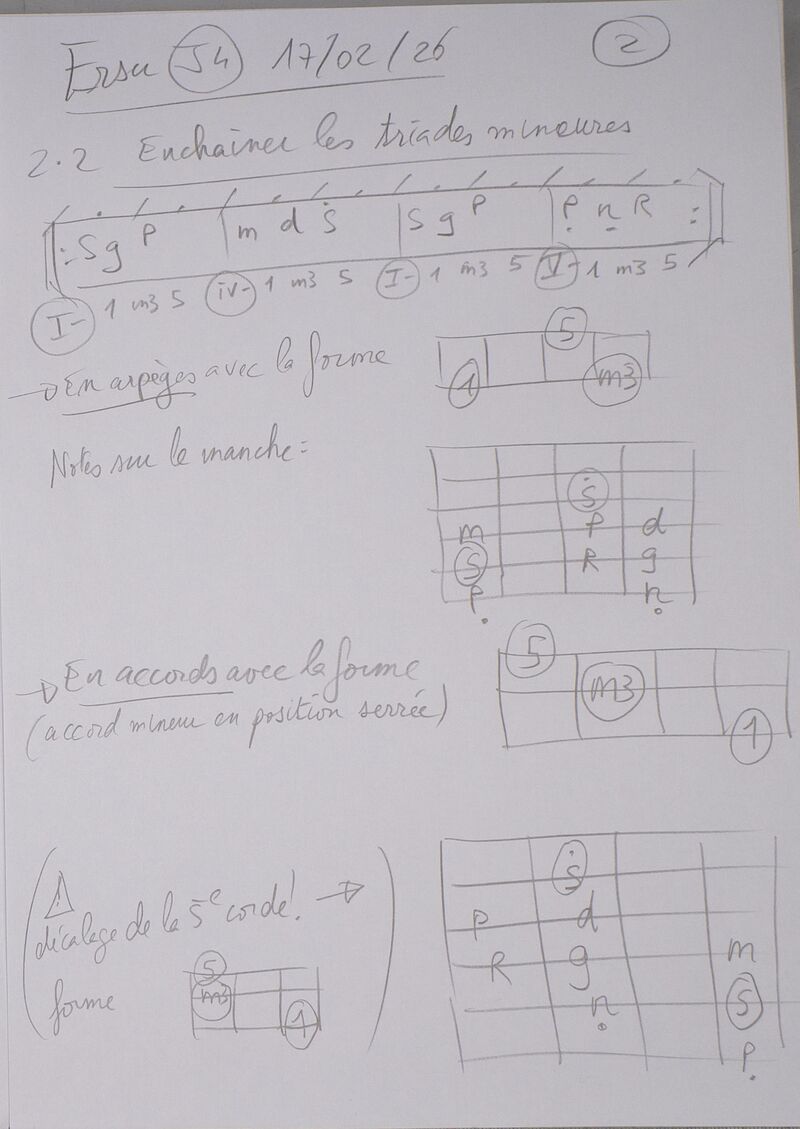 Ersu J4 17/02/26 2
2.2 Enchaîner les triades mineures
S g P m d Ṡ S g P P̣ ṇ R
I- 1 m3 5 iv- 1 m3 5 I- 1 m3 5 V- 1 m3 5
→ En arpèges avec la forme
5
1 m3
Notes sur le manche =
Ṡ
m P d
S R g
P̣ ṇ
→ En accords avec la forme
(accord mineur en position serrée)
5
m3
1
⚠ décalage de la 5e corde! →
forme
5
m3
1
Ṡ
P d
R g m
ṇ S
P̣